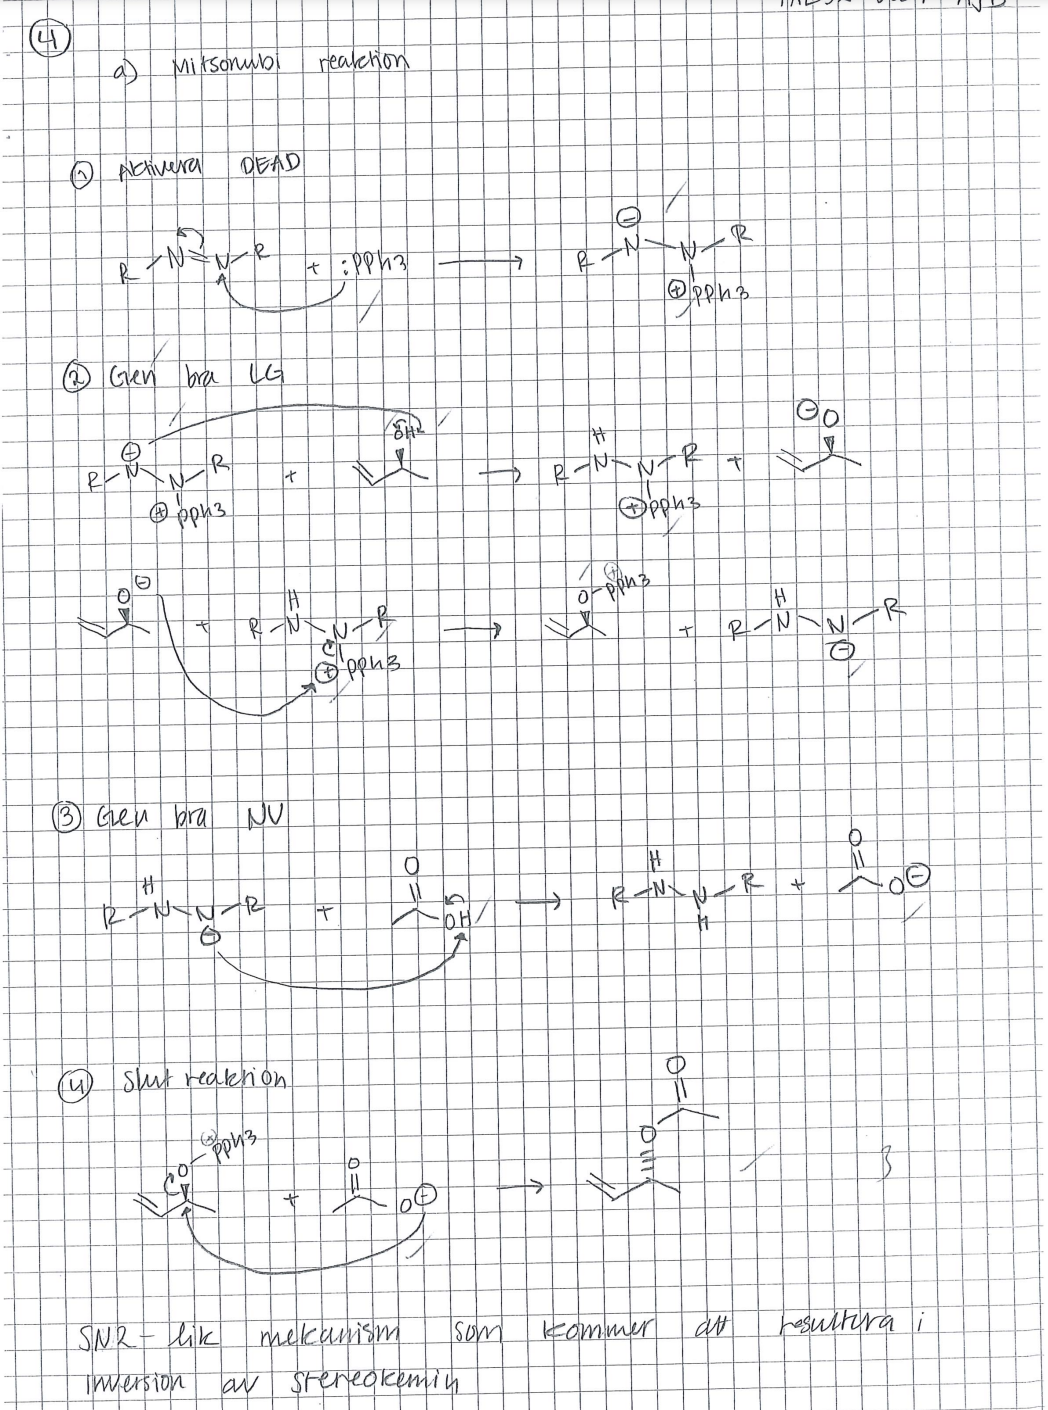 4
a) Mitsonubi reaktion
① Aktivera DEAD
R N N R + :PPh3 ⊖ R N N R ⊕ PPh3
② Gen bra LG
R N N R ⊕ PPh3 + OH H R N N R ⊕ PPh3 + ⊖ O
O ⊖ + R H N N R ⊕ PPh3 O ⊕ PPh3 + R H N N R ⊖
③ Gen bra NU
R H N N R ⊖ + O OH R H N N H R + O O ⊖
④ Slut reaktion
O ⊕ PPh3 + O O ⊖ O O 3
SN2 - lik mekanism som kommer att resultera i
inversion av stereokemin